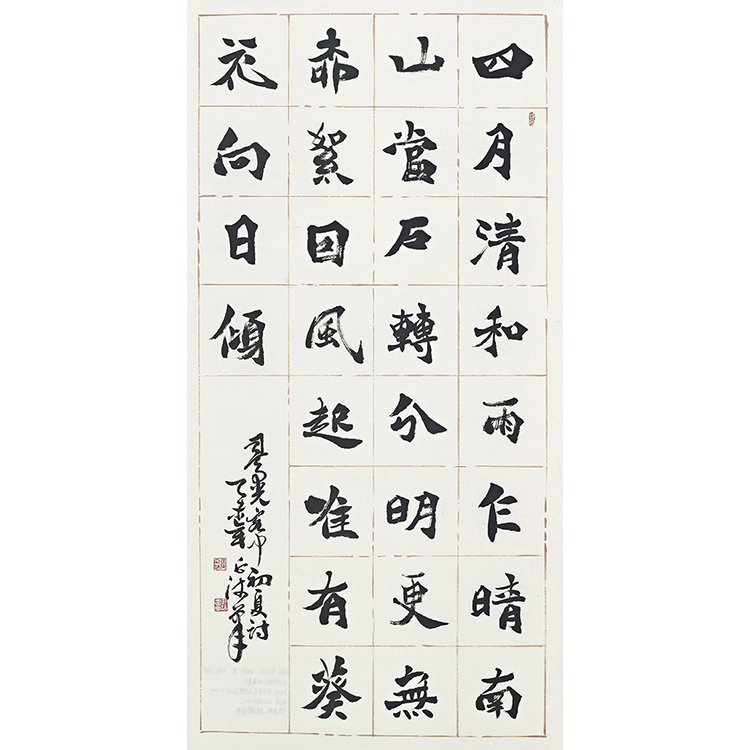 四月清和雨乍晴南
山當石轉分明更無
柳絮回風起唯有葵
花向日傾
司馬光客中初夏詩
乙未年